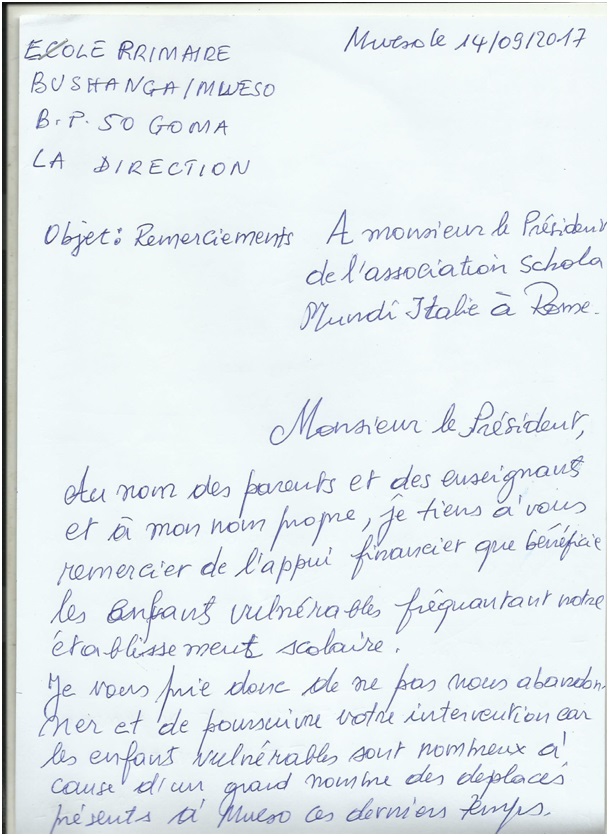 ECOLE PRIMAIRE
Mweso le 14/09/2017
BUSHANGA/MWESO
B.P. 50 GOMA
LA DIRECTION
Objet: Remerciements
A monsieur le Président
de l'association Schola
Mundi Italie à Rome.
Monsieur le Président,
Au nom des parents et des enseignants
et à mon nom propre, je tiens à vous
remercier de l'appui financier que bénéficie
les enfants vulnérables fréquantant notre
établissement scolaire.
Je vous prie donc de ne pas nous abandon-
ner et de poursuivre votre intervention car
les enfant vulnérables sont nombreux à
cause d'un grand nombre des deplacés
présents à Mweso ces derniers temps.